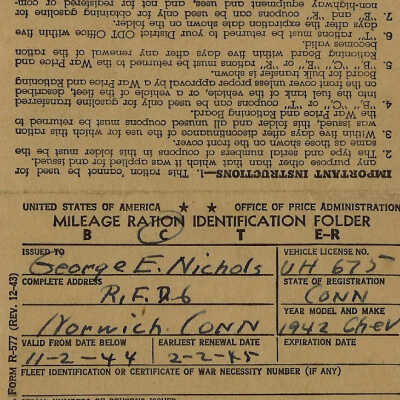 non-highway equipment and uses, and not for registered or com-
7. "E" and "R" coupons can be used only for obtaining gasoline for
days after the expiration date shown on the folder.
6. "T" rations must be returned to your District ODT Office within five
become valid.
Rationing Board within five days after any renewal of the ration
5. "B", "C", "E" or "R" rations must be returned to the War Price and
Board for bulk transfer is shown.
on the front cover unless proper approval by a War Price and Rationing
into the fuel tank of the vehicle, or a vehicle of the fleet, described
4. "B", "C", or "T" coupons can be used only for gasoline transferred
the War Price and Rationing Board.
was issued, this folder and all unused coupons must be returned to
3. Within five days after discontinuance of the use for which this ration
same as those shown on the front cover.
2. The type and serial numbers of coupons in this folder must be the
any purpose other than that which it was applied for and issued.
IMPORTANT INSTRUCTIONS—1. This ration cannot be used for
UNITED STATES OF AMERICA ★ ★ OFFICE OF PRICE ADMINISTRATION
MILEAGE RATION IDENTIFICATION FOLDER
B C T E-R
ISSUED TO VEHICLE LICENSE NO.
George E. Nichols UH 675
COMPLETE ADDRESS STATE OF REGISTRATION
R.F.D. 6 CONN
YEAR MODEL AND MAKE
Norwich. CONN 1942 Chev
VALID FROM DATE BELOW EARLIEST RENEWAL DATE EXPIRATION DATE
11-2-44 2-2-45
FLEET IDENTIFICATION OR CERTIFICATE OF WAR NECESSITY NUMBER (IF ANY)
FORM R-577 (REV. 12-43)